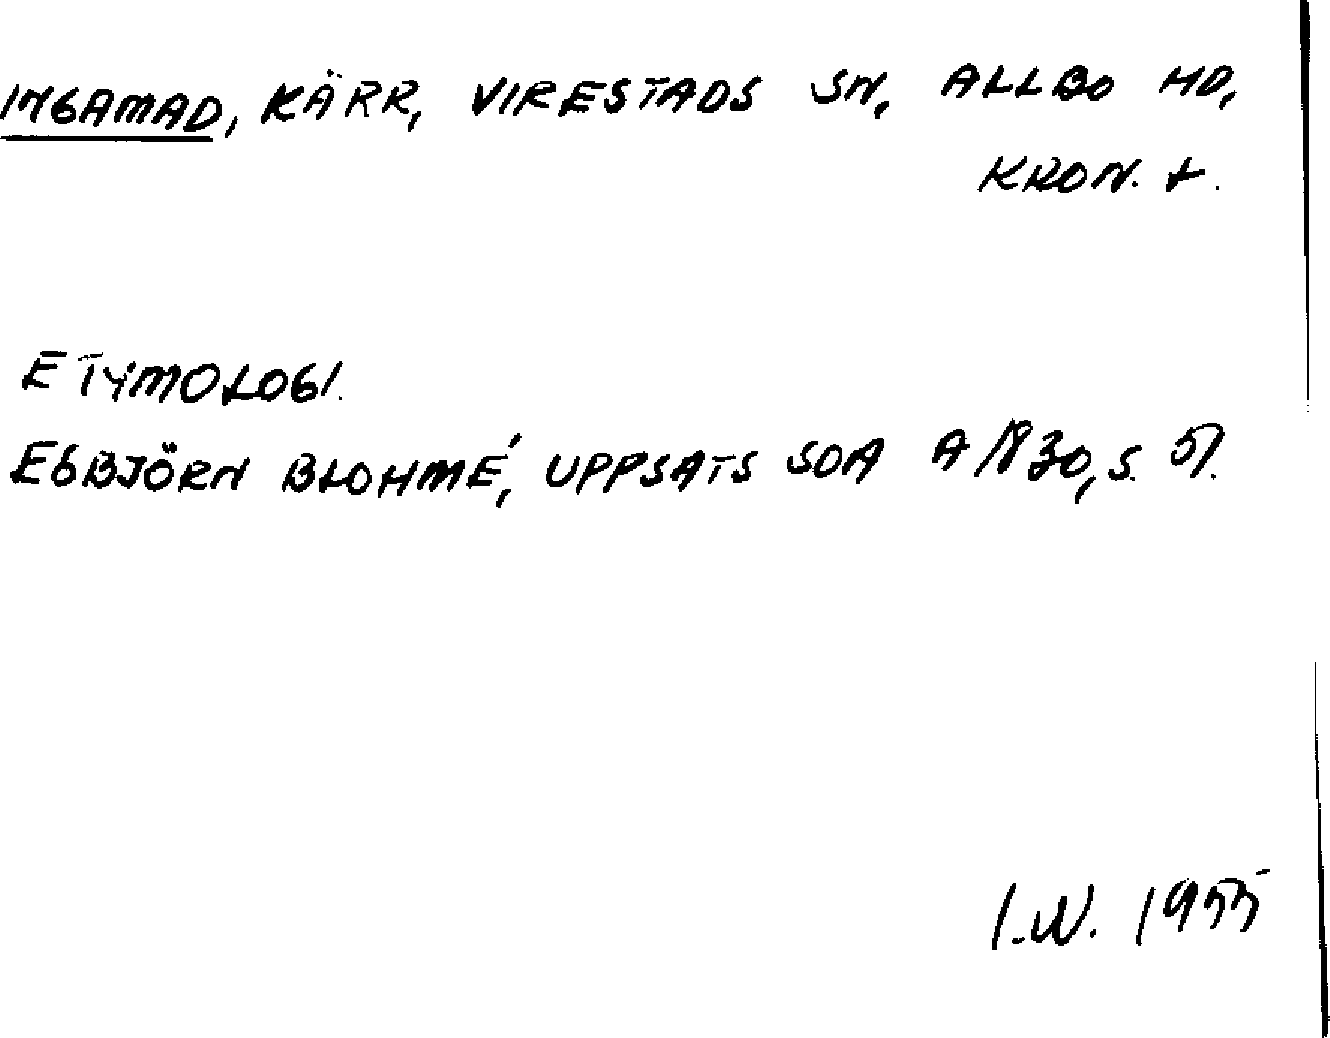 INGAMAD, KÄRR, VIRESTADS SN, ALLBO HD,
KRON. L.
ETYMOLOGI.
EGBJÖRN BLOHMÉ, UPPSATS SOA A1830, S. 51.
I.N. 1955